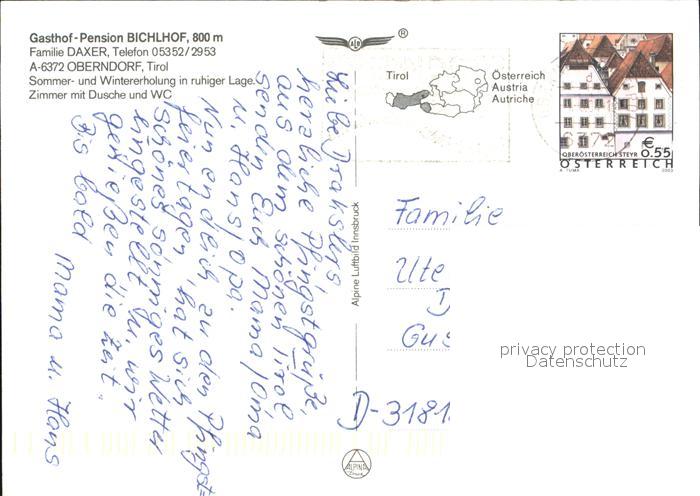 Gasthof-Pension BICHLHOF, 800 m
Familie DAXER, Telefon 05352/2953
A-6372 OBERNDORF, Tirol
Sommer- und Wintererholung in ruhiger Lage.
Zimmer mit Dusche und WC
Liebe Drakslers,
herzliche Pfingstgrüße,
aus dem schönen Tirol
senden Euch Mama/Oma
u. Hans/Opa.
Nun endlich, zu den Pfingst=
feiertagen, hat sich
schönes, sonniges Wetter
eingestellt u. wir
genießen die Zeit.
Bis bald
Mama u. Hans
Alpine Luftbild Innsbruck
ALPINE
®
Tirol
Österreich
Austria
Autriche
6372
€
0.55
OBERÖSTERREICH STEYR
ÖSTERREICH
A. TUMA
2003
Familie
Ute
D
Gus
D-3181
privacy protection
Datenschutz